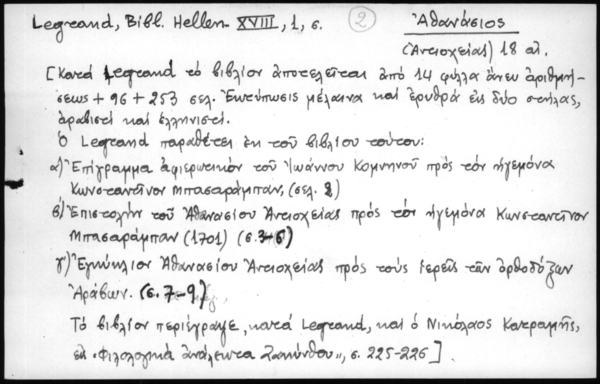 Legrand, Bibl. Hellen. XVIII, 1, σ. ② Ἀθανάσιος
(Ἀντιοχείας) 18 αἰ.
[Κατὰ Legrand τὸ βιβλίον ἀποτελεῖται ἀπὸ 14 φύλλα ἄνευ ἀριθμή-
σεως + 96 + 253 σελ. Ἐκτύπωσις μέλαινα καὶ ἐρυθρὰ εἰς δύο στήλας,
ἀραβιστὶ καὶ ἑλληνιστί.
Ὁ Legrand παραθέτει ἐκ τοῦ βιβλίου τούτου:
α) Ἐπίγραμμα ἀφιερωτικὸν τοῦ Ἰωάννου Κομνηνοῦ πρὸς τὸν ἡγεμόνα
Κωνσταντῖνον Μπασαράμπαν, (σελ. 2)
β) Ἐπιστολὴν τοῦ Ἀθανασίου Ἀντιοχείας πρὸς τὸν ἡγεμόνα Κωνσταντῖνον
Μπασαράμπαν (1701) (σ. 3-6)
γ) Ἐγκύκλιον Ἀθανασίου Ἀντιοχείας πρὸς τοὺς ἱερεῖς τῶν ὀρθοδόξων
Ἀράβων. (σ. 7-9)
Τὸ βιβλίον περιέγραψε, κατὰ Legrand, καὶ ὁ Νικόλαος Κατραμῆς,
εἰς «Φιλολογικὰ ἀνάλεκτα Ζακύνθου», σ. 225-226].